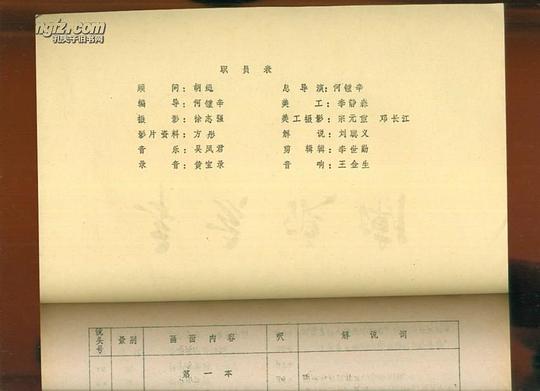 孔夫子旧书网
职员表
顾问：胡越 总导演：何镗辛
编导：何镗辛 美工：李静森
摄影：徐志强 美工摄影：宋元重 邓长江
影片资料：方彤 解说：刘聪义
音乐：吴凤君 剪辑辑：李世勤
录音：黄宝录 音响：王金生
镜头号 景别 画面内容 尺 解说词
第一本